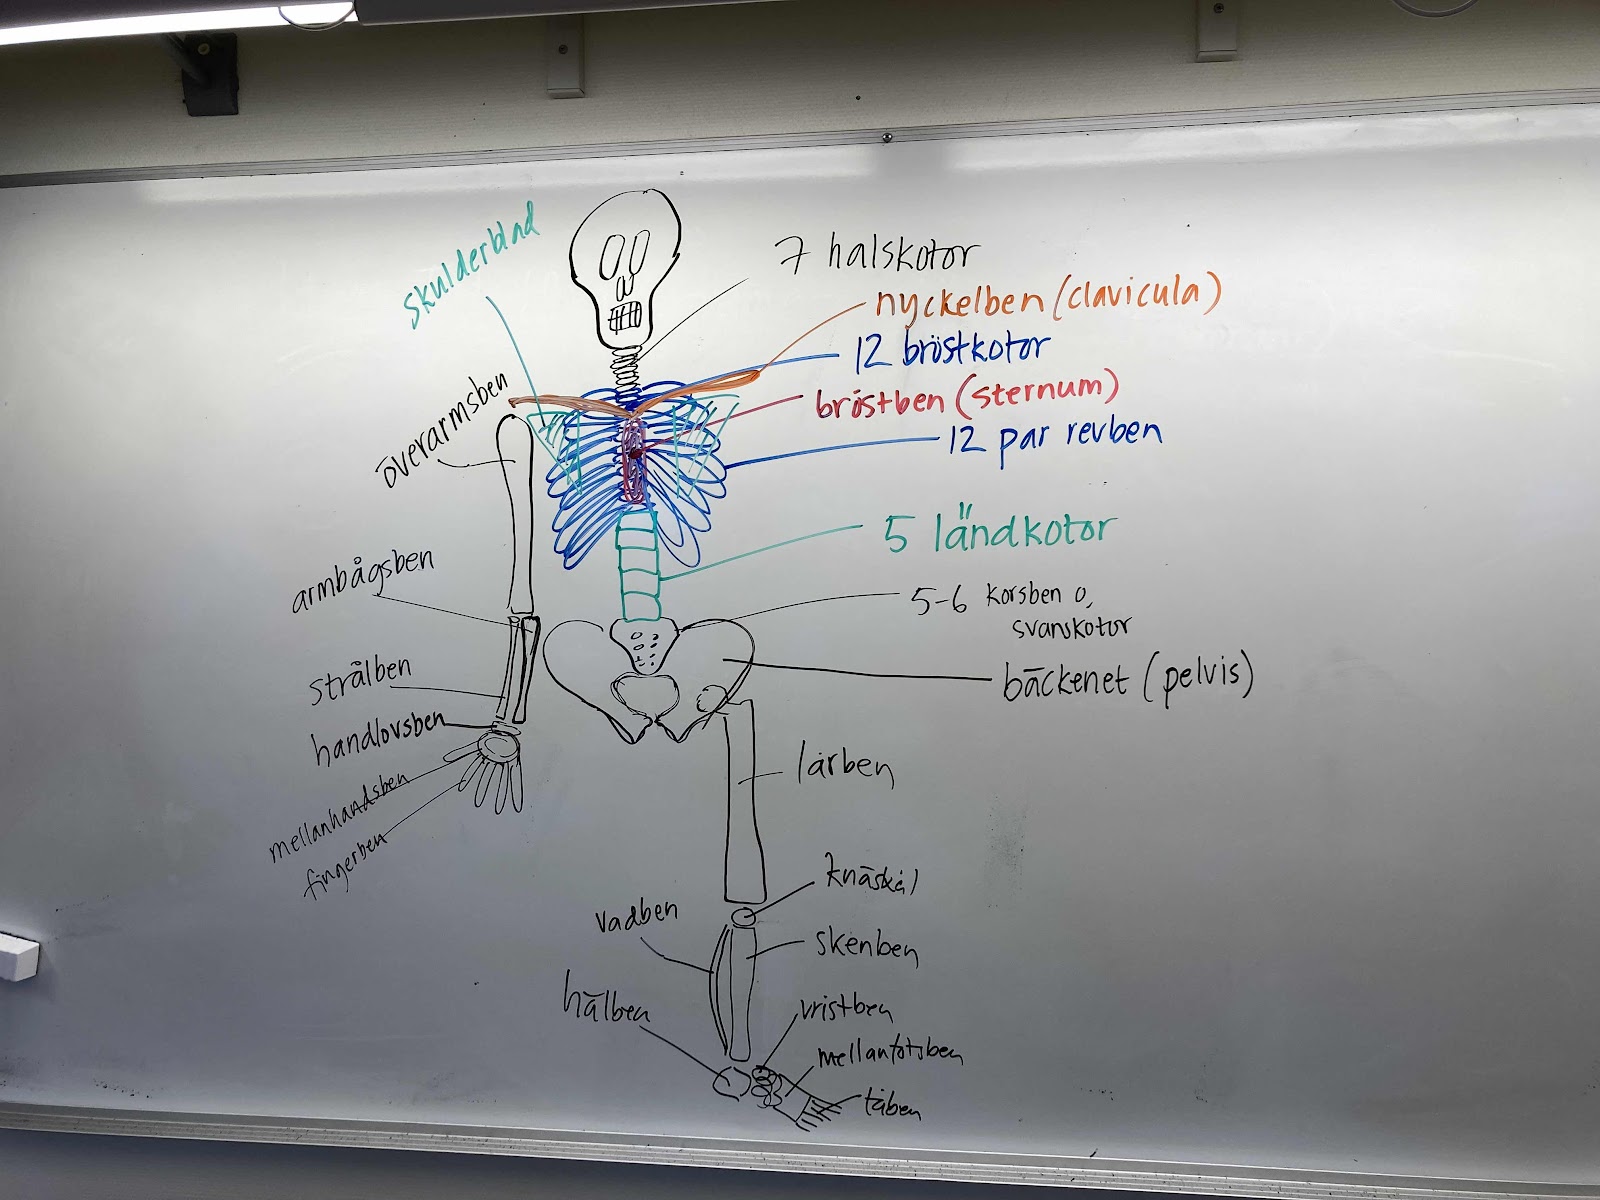 skulderblad
7 halskotor
nyckelben (clavicula)
12 bröstkotor
bröstben (sternum)
12 par revben
överarmsben
5 ländkotor
armbågsben
5-6 korsben o,
svanskotor
strålben
bäckenet (pelvis)
handlovsben
mellanhandsben
fingerben
lårben
knäskål
vadben
skenben
hälben
vristben
mellanfotsben
tåben